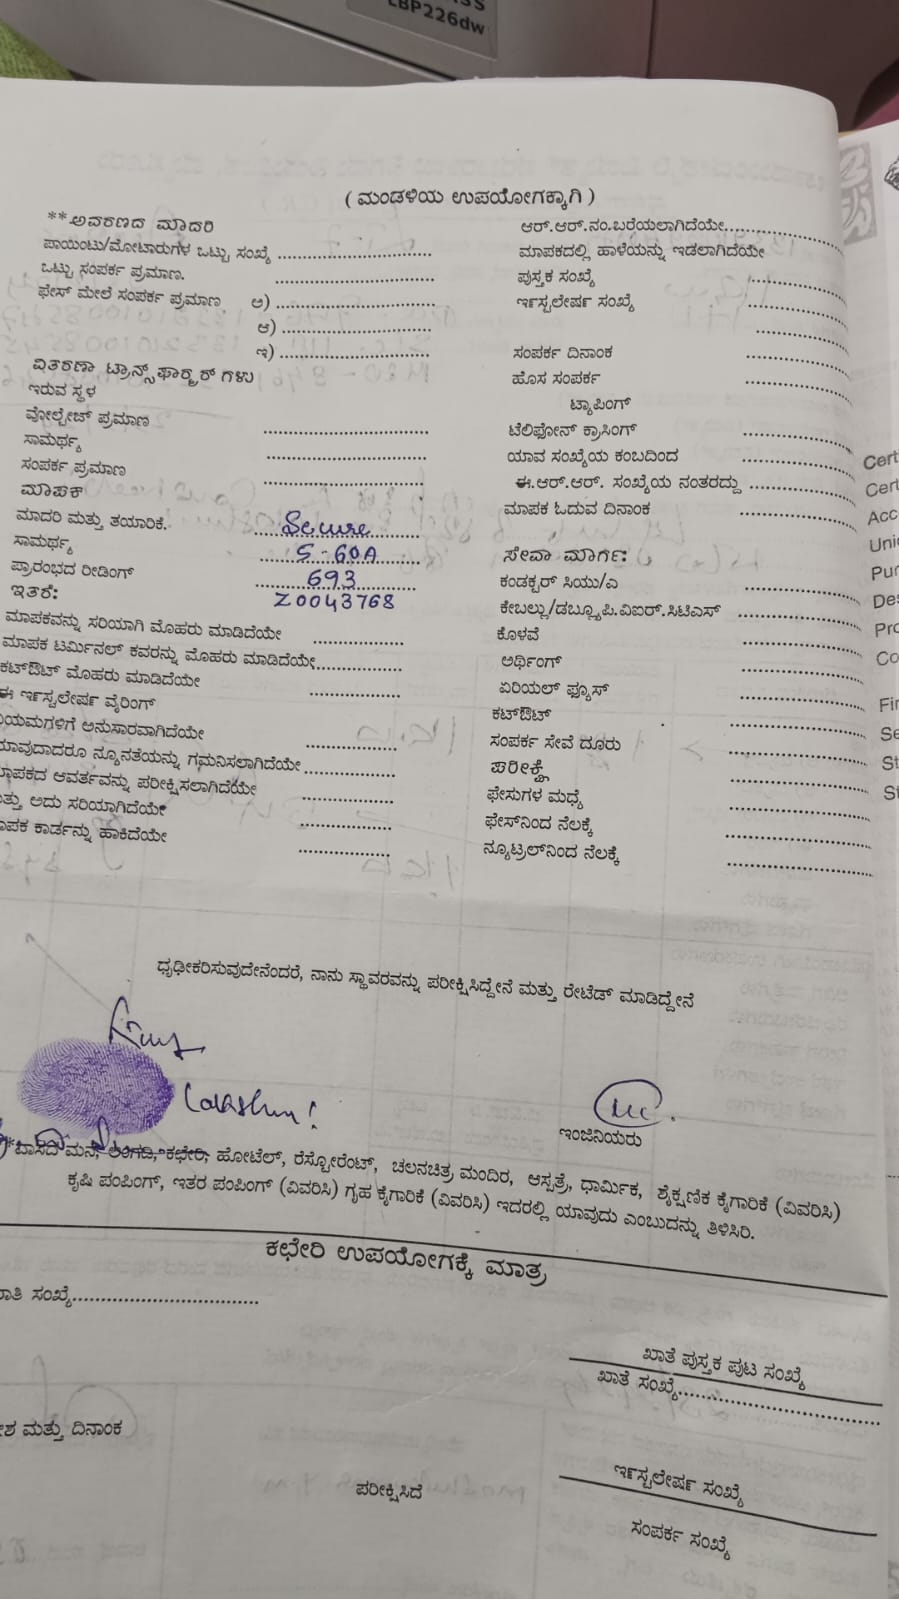 LBP226dw
( ಮಂಡಳಿಯ ಉಪಯೋಗಕ್ಕಾಗಿ )
**ಅವರಣದ ಮಾದರಿ
ಪಾಯಿಂಟು/ಮೋಟಾರುಗಳ ಒಟ್ಟು ಸಂಖ್ಯೆ
ಒಟ್ಟು ಸಂಪರ್ಕ ಪ್ರಮಾಣ.
ಫೇಸ್ ಮೇಲೆ ಸಂಪರ್ಕ ಪ್ರಮಾಣ ಅ)
ಆ)
ಇ)
ವಿತರಣಾ ಟ್ರಾನ್ಸ್‌ಫಾರ್ಮರ್ ಗಳು
ಇರುವ ಸ್ಥಳ
ವೋಲ್ಟೇಜ್ ಪ್ರಮಾಣ
ಸಾಮರ್ಥ್ಯ
ಸಂಪರ್ಕ ಪ್ರಮಾಣ
ಮಾಪಕ
ಮಾದರಿ ಮತ್ತು ತಯಾರಿಕೆ. Secure
ಸಾಮರ್ಥ್ಯ 5-60A
ಪ್ರಾರಂಭದ ರೀಡಿಂಗ್ 693
ಇತರೆ: Z0043768
ಮಾಪಕವನ್ನು ಸರಿಯಾಗಿ ಮೊಹರು ಮಾಡಿದೆಯೇ
ಮಾಪಕ ಟರ್ಮಿನಲ್ ಕವರನ್ನು ಮೊಹರು ಮಾಡಿದೆಯೇ
ಕಟ್‌ಔಟ್ ಮೊಹರು ಮಾಡಿದೆಯೇ
ಈ ಇನ್‌ಸ್ಟಲೇಷನ್ ವೈರಿಂಗ್
ಯಮಗಳಿಗೆ ಅನುಸಾರವಾಗಿದೆಯೇ
ಯಾವುದಾದರೂ ನ್ಯೂನತೆಯನ್ನು ಗಮನಿಸಲಾಗಿದೆಯೇ
ಮಾಪಕದ ಆವರ್ತವನ್ನು ಪರೀಕ್ಷಿಸಲಾಗಿದೆಯೇ
ಮತ್ತು ಅದು ಸರಿಯಾಗಿದೆಯೇ
ಮಾಪಕ ಕಾರ್ಡನ್ನು ಹಾಕಿದೆಯೇ
ಆರ್.ಆರ್.ನಂ.ಬರೆಯಲಾಗಿದೆಯೇ
ಮಾಪಕದಲ್ಲಿ ಹಾಳೆಯನ್ನು ಇಡಲಾಗಿದೆಯೇ
ಪುಸ್ತಕ ಸಂಖ್ಯೆ
ಇನ್‌ಸ್ಟಲೇಷನ್ ಸಂಖ್ಯೆ
ಸಂಪರ್ಕ ದಿನಾಂಕ
ಹೊಸ ಸಂಪರ್ಕ
ಟ್ಯಾಪಿಂಗ್
ಟೆಲಿಫೋನ್ ಕ್ರಾಸಿಂಗ್
ಯಾವ ಸಂಖ್ಯೆಯ ಕಂಬದಿಂದ
ಈ.ಆರ್.ಆರ್. ಸಂಖ್ಯೆಯ ನಂತರದ್ದು
ಮಾಪಕ ಓದುವ ದಿನಾಂಕ
ಸೇವಾ ಮಾರ್ಗ:
ಕಂಡಕ್ಟರ್ ಸಿಯು/ಎ
ಕೇಬಲ್ಲು/ಡಬ್ಲ್ಯೂ.ಪಿ.ವಿಐಆರ್.ಸಿಟಿಎಸ್
ಕೊಳವೆ
ಅರ್ಥಿಂಗ್
ಏರಿಯಲ್ ಫ್ಯೂಸ್
ಕಟ್‌ಔಟ್
ಸಂಪರ್ಕ ಸೇವೆ ದೂರು
ಪರೀಕ್ಷೆ
ಫೇಸುಗಳ ಮಧ್ಯೆ
ಫೇಸ್‌ನಿಂದ ನೆಲಕ್ಕೆ
ನ್ಯೂಟ್ರಲ್‌ನಿಂದ ನೆಲಕ್ಕೆ
ಧೃಢೀಕರಿಸುವುದೇನೆಂದರೆ, ನಾನು ಸ್ಥಾವರವನ್ನು ಪರೀಕ್ಷಿಸಿದ್ದೇನೆ ಮತ್ತು ರೇಟೆಡ್ ಮಾಡಿದ್ದೇನೆ
ಇಂಜಿನಿಯರು
**ವಾಸದ ಮನೆ, ಅಂಗಡಿ, ಕಛೇರಿ, ಹೋಟೆಲ್, ರೆಸ್ಟೋರೆಂಟ್, ಚಲನಚಿತ್ರ ಮಂದಿರ, ಆಸ್ಪತ್ರೆ, ಧಾರ್ಮಿಕ, ಶೈಕ್ಷಣಿಕ ಕೈಗಾರಿಕೆ (ವಿವರಿಸಿ)
ಕೃಷಿ ಪಂಪಿಂಗ್, ಇತರ ಪಂಪಿಂಗ್ (ವಿವರಿಸಿ) ಗೃಹ ಕೈಗಾರಿಕೆ (ವಿವರಿಸಿ) ಇದರಲ್ಲಿ ಯಾವುದು ಎಂಬುದನ್ನು ತಿಳಿಸಿರಿ.
ಕಛೇರಿ ಉಪಯೋಗಕ್ಕೆ ಮಾತ್ರ
ಸಂಖ್ಯೆ
ಖಾತೆ ಪುಸ್ತಕ ಪುಟ ಸಂಖ್ಯೆ
ಖಾತೆ ಸಂಖ್ಯೆ
ಮತ್ತು ದಿನಾಂಕ
ಪರೀಕ್ಷಿಸಿದೆ
ಇನ್‌ಸ್ಟಲೇಷನ್ ಸಂಖ್ಯೆ
ಸಂಪರ್ಕ ಸಂಖ್ಯೆ